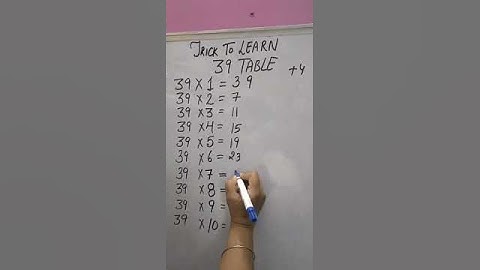 TRICK TO LEARN
39 TABLE +4
39 X 1 = 3 9
39 X 2 = 7
39 X 3 = 11
39 X 4 = 15
39 X 5 = 19
39 X 6 = 23
39 X 7 =
39 X 8 =
39 X 9 =
39 X 10 =